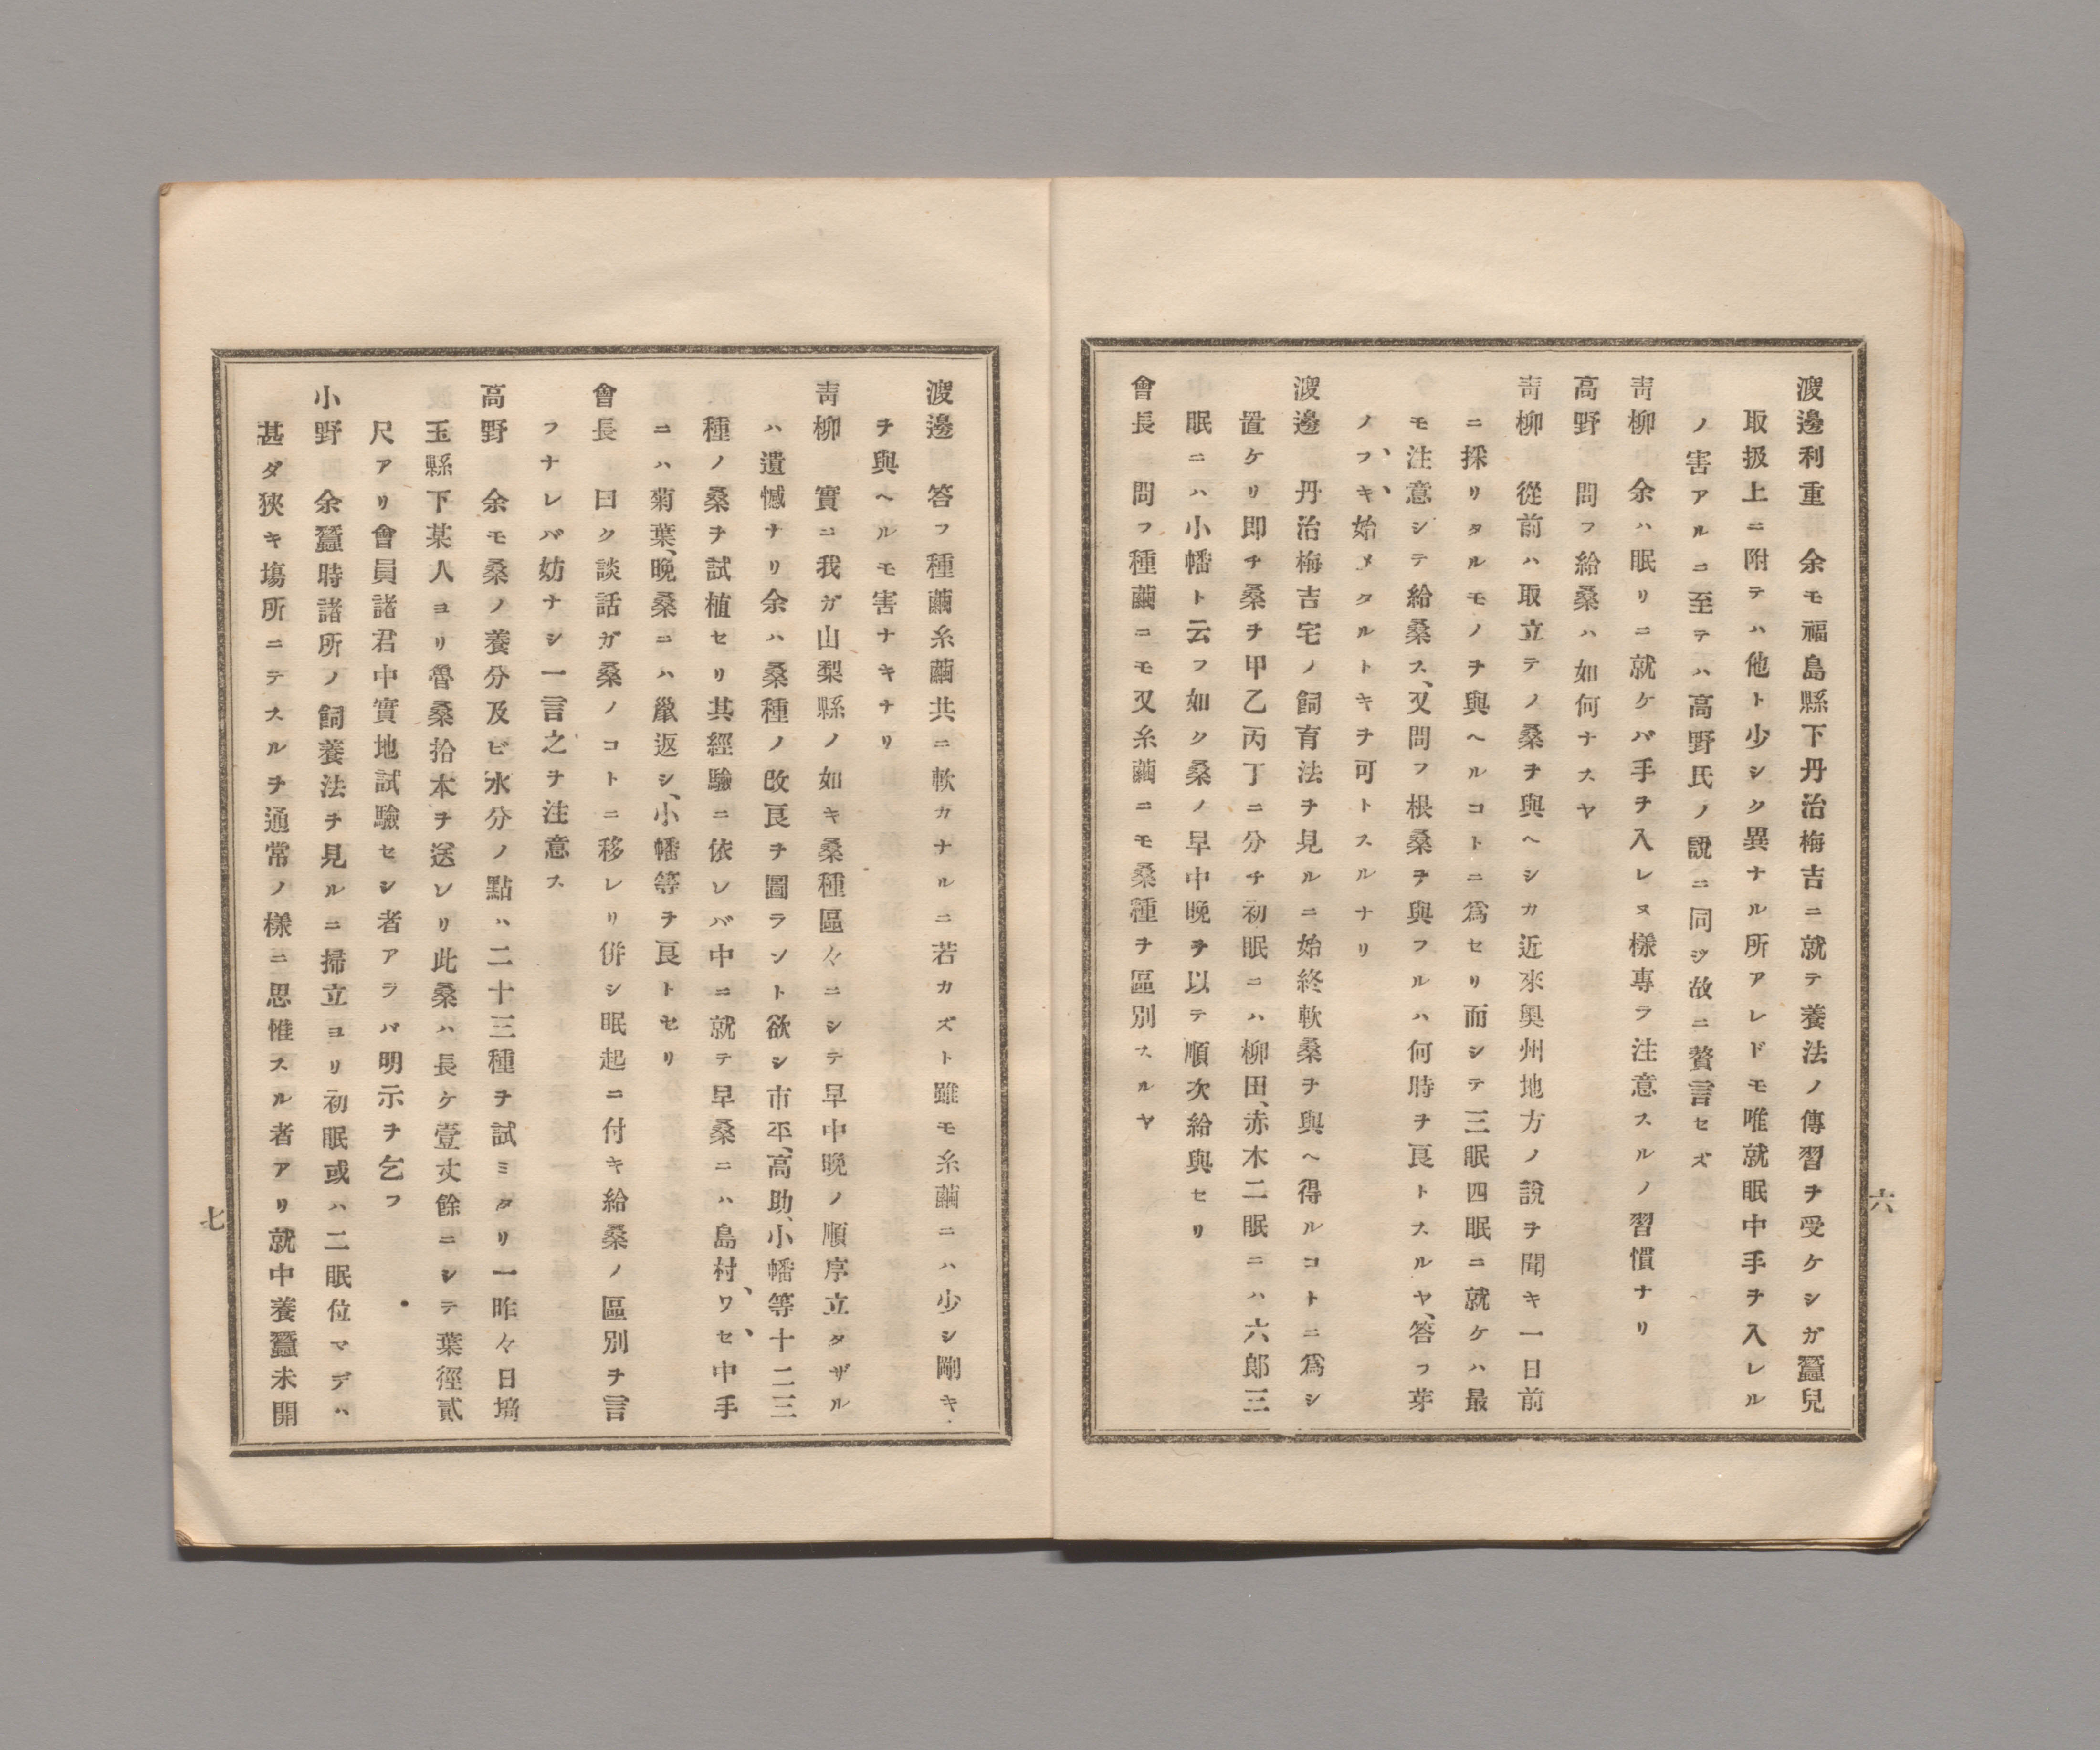 渡邊利重　余モ福島縣下丹治梅吉ニ就テ養法ノ傳習ヲ受ケシガ蠶兒
取扱上ニ附テハ他ト少シク異ナル所アレドモ唯就眠中手ヲ入レル
ノ害アルニ至テハ高野氏ノ說ニ同ジ故ニ贅言セズ
靑柳　余ハ眠リニ就ケバ手ヲ入レヌ樣專ラ注意スルノ習慣ナリ
高野　問フ給桑ハ如何ナスヤ
靑柳　從前ハ取立テノ桑ヲ與ヘシカ近來奧州地方ノ說ヲ聞キ一日前
ニ採リタルモノヲ與ヘルコトニ爲セリ而シテ三眠四眠ニ就ケハ最
モ注意シテ給桑ス、又問フ根桑ヲ與フルハ何時ヲ良トスルヤ、答フ芽
ノフキ始メタルトキヲ可トスルナリ
渡邊　丹治梅吉宅ノ飼育法ヲ見ルニ始終軟桑ヲ與ヘ得ルコトニ爲シ
置ケリ即チ桑ヲ甲乙丙丁ニ分チ初眠ニハ柳田、赤木二眠ニハ六郎三
眠ニハ小幡ト云フ如ク桑ノ早中晚ヲ以テ順次給與セリ
會長　問フ種繭ニモ又糸繭ニモ桑種ヲ區別スルヤ
六
渡邊　答フ種繭糸繭共ニ軟カナルニ若カズト雖モ糸繭ニハ少シ剛キ
ヲ與ヘルモ害ナキナリ
靑柳　實ニ我ガ山梨縣ノ如キ桑種區々ニシテ早中晚ノ順序立タザル
ハ遺憾ナリ余ハ桑種ノ改良ヲ圖ラント欲シ市平、高助、小幡等十二三
種ノ桑ヲ試植セリ其經驗ニ依レバ中ニ就テ早桑ニハ島村、ワセ、中手
ニハ菊葉、晚桑ニハ鼠返シ、小幡等ヲ良トセリ
會長　曰ク談話ガ桑ノコトニ移レリ併シ眠起ニ付キ給桑ノ區別ヲ言
フナレバ妨ナシ一言之ヲ注意ス
高野　余モ桑ノ養分及ビ水分ノ點ハ二十三種ヲ試ミタリ一昨々日埼
玉縣下某人ヨリ魯桑拾本ヲ送レリ此桑ハ長ケ壹丈餘ニシテ葉徑貳
尺アリ會員諸君中實地試驗セシ者アラバ明示ヲ乞フ
小野　余蠶時諸所ノ飼養法ヲ見ルニ掃立ヨリ初眠或ハ二眠位マデハ
甚ダ狹キ塲所ニテスルヲ通常ノ樣ニ思惟スル者アリ就中養蠶未開
七